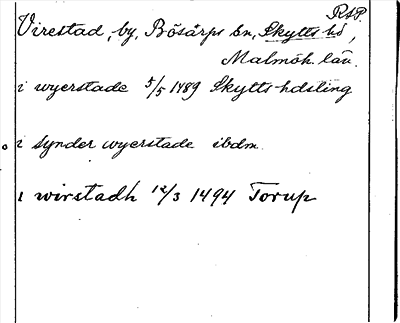 RAP.
Virestad, by, Bösarps sn, Skytts hd,
Malmöh. län.
i wyerstade 5/5 1489 Skytts hdsting
i synder wyerstade ibdm.
i wirstadh 12/3 1494 Torup